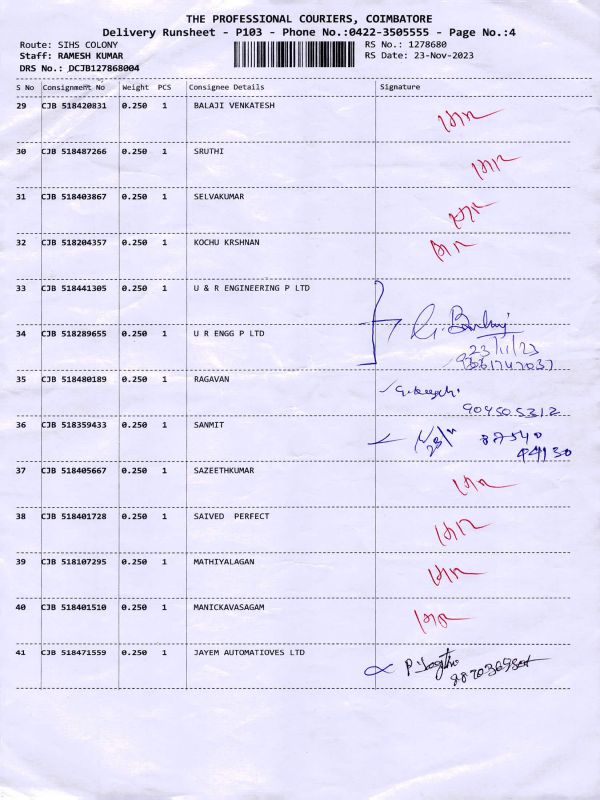 THE PROFESSIONAL COURIERS, COIMBATORE
Delivery Runsheet - P103 - Phone No.:0422-3505555 - Page No.:4
Route: SIHS COLONY RS No.: 1278680
Staff: RAMESH KUMAR RS Date: 23-Nov-2023
DRS No.: DCJB127868004
S No Consignment No Weight PCS Consignee Details Signature
29 CJB 518420831 0.250 1 BALAJI VENKATESH
30 CJB 518487266 0.250 1 SRUTHI
31 CJB 518403867 0.250 1 SELVAKUMAR
32 CJB 518204357 0.250 1 KOCHU KRSHNAN
33 CJB 518441305 0.250 1 U & R ENGINEERING P LTD
34 CJB 518289655 0.250 1 U R ENGG P LTD
23/11/23
35 CJB 518480189 0.250 1 RAGAVAN
909505312
36 CJB 518359433 0.250 1 SANMIT
87540
44130
37 CJB 518405667 0.250 1 SAZEETHKUMAR
38 CJB 518401728 0.250 1 SAIVED PERFECT
39 CJB 518107295 0.250 1 MATHIYALAGAN
40 CJB 518401510 0.250 1 MANICKAVASAGAM
41 CJB 518471559 0.250 1 JAYEM AUTOMATIOVES LTD